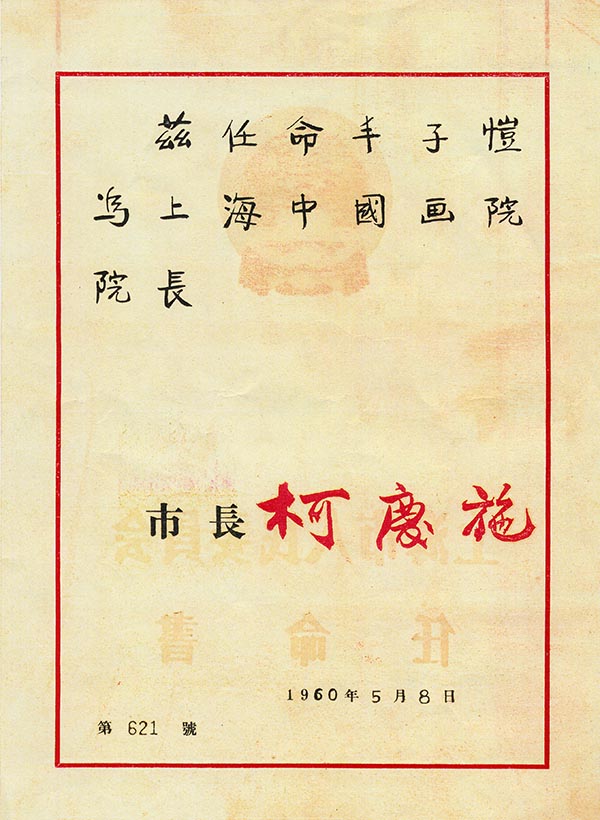 茲任命丰子愷
為上海中國画院
院長
市長 柯慶施
任命書
1960年5月8日
第 621 號